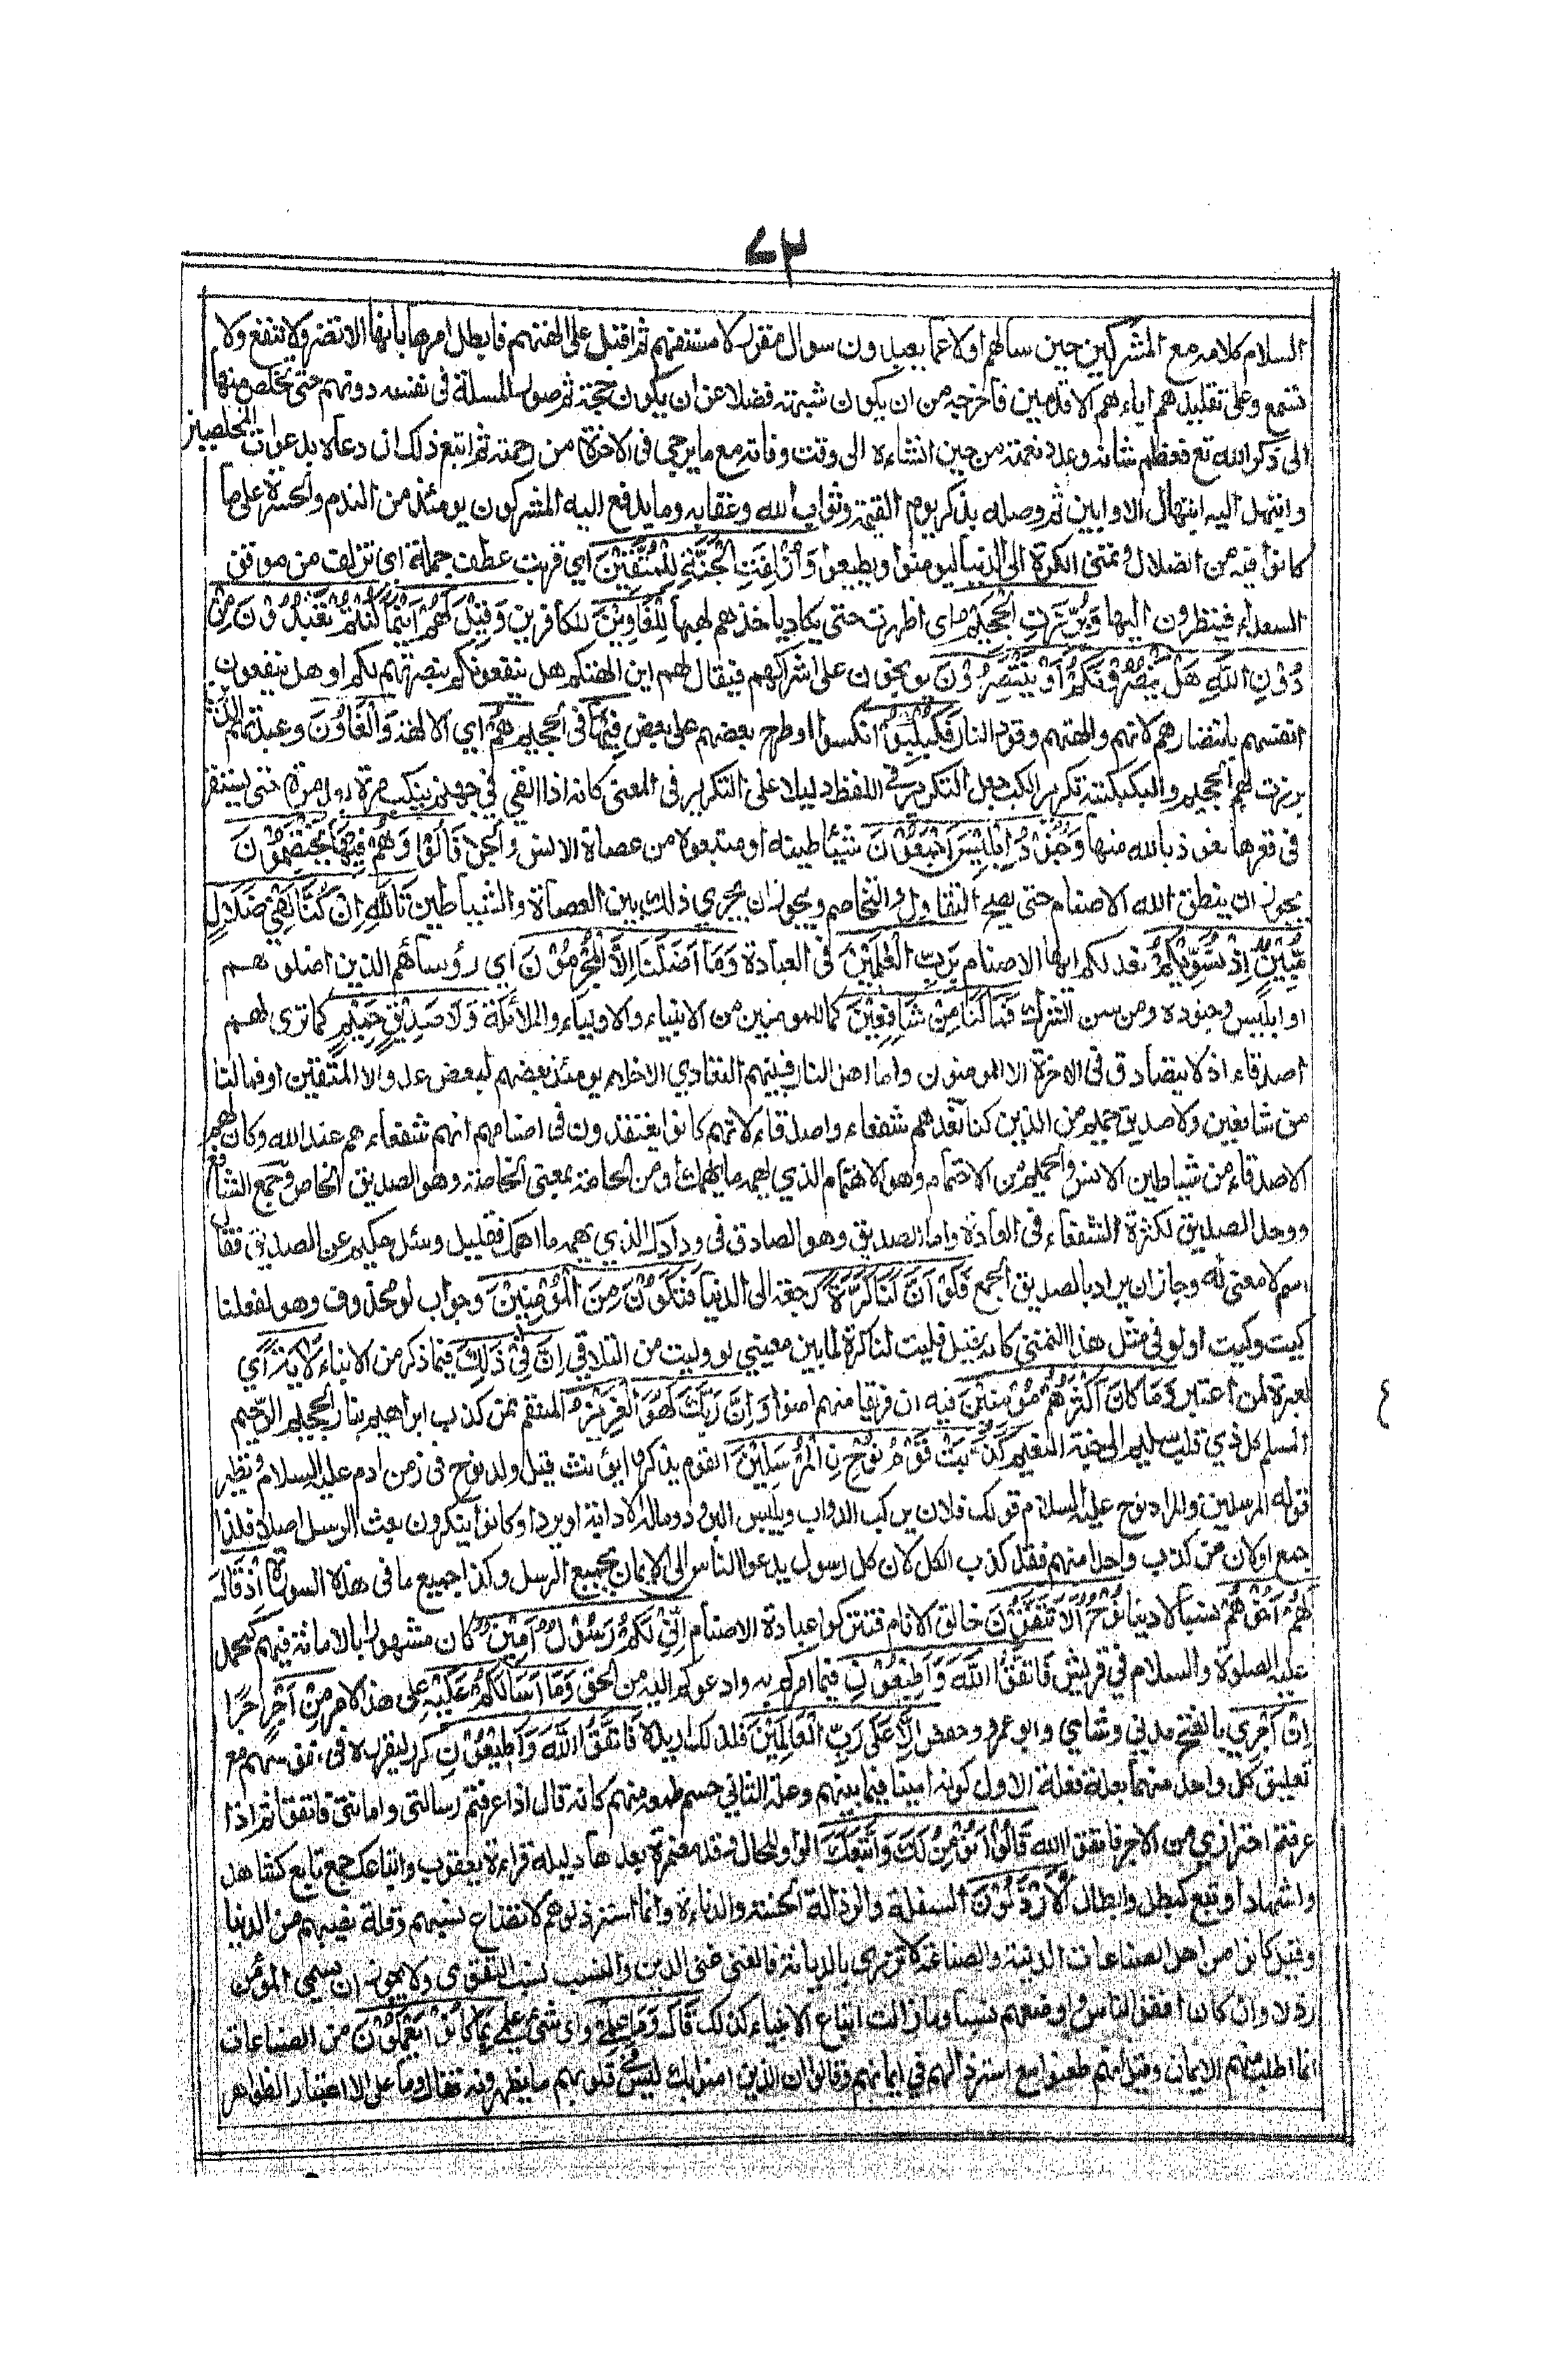 ٧٣
السلام كلامه مع المشركين حين سالهم اولا عما يعبدون سوال مقرر لا مستفهم ثم اقبل على الهتهم فابطل امرها بانها لا تضر ولا تنفع ولا
تسمع وعلى تقليدهم اباءهم الاقدمين فاخرجه من ان يكون شبهة فضلا عن ان يكون حجة ثم صور المسئلة فى نفسه دونهم حتى تخلص منها
الى ذكر الله تع فعظم شانه وعدد نعمته من حين انشاءه الى وقت وفاته مع ما يرجى فى الاخرة من رحمته ثم اتبع ذلك ان دعاه بدعوات المخلصين
وابتهل اليه ابتهال الاوابين ثم وصله بذكر يوم القيمة وثواب الله وعقابه وما يدفع اليه المشركون يومئذ من الندم والحسرة على ما
كانوا فيه من الضلال وتمنى الكرة الى الدنيا ليومنوا ويطيعوا وَاُزْلِفَتِ الْجَنَّةُ لِلْمُتَّقِيْنَ اي قربت عطف جملة اى تزلف من موقف
السعداء فينظرون اليها وَبُرِّزَتِ الْجَحِيْمُ اى اظهرت حتى يكاد ياخذهم لهبها لِلْغَاوِيْنَ للكافرين وَقِيْلَ لَهُمْ اَيْنَمَا كُنْتُمْ تَعْبُدُوْنَ مِنْ
دُوْنِ اللّٰهِ هَلْ يَنْصُرُوْنَكُمْ اَوْ يَنْتَصِرُوْنَ يوبخون على اشراكهم فيقال لهم اين الهتكم هل ينفعونكم بنصرتهم لكم او هل ينفعون
انفسهم بانتصارهم لانهم والهتهم وقود النار فَكُبْكِبُوْا انكسوا او طرح بعضهم على بعض فِيْهَا فى الجحيم هُمْ اي الالهة وَالْغَاوُنَ وعبدتهم الذين
برزت لهم الجحيم والكبكبة تكرير الكب جعل التكرير فى اللفظ دليلا على التكرير فى المعنى كانه اذا القي في جهنم ينكب مرة بعد مرة حتى يستقر
فى قعرها نعوذ بالله منها وَجُنُوْدُ اِبْلِيْسَ اَجْمَعُوْنَ شياطينه او متبعوه من عصاة الانس والجن قَالُوْا وَهُمْ فِيْهَا يَخْتَصِمُوْنَ
يجوز ان ينطق الله الاصنام حتى يصح التقاول والتخاصم ويجوز ان يجري ذلك بين العصاة والشياطين تَاللّٰهِ اِنْ كُنَّا لَفِيْ ضَلٰلٍ
مُّبِيْنٍ اِذْ نُسَوِّيْكُمْ نعدلكم ايها الاصنام بِرَبِّ الْعٰلَمِيْنَ فى العبادة وَمَا اَضَلَّنَا اِلَّا الْمُجْرِمُوْنَ اي رؤساءهم الذين اضلوهم
او ابليس وجنوده ومن سن الشرك فَمَا لَنَا مِنْ شَافِعِيْنَ كما للمومنين من الانبياء والاولياء والملائكة وَلَا صَدِيْقٍ حَمِيْمٍ كما نرى لهم
اصدقاء اذ لا يتصادق فى الاخرة الا المومنون واما اهل النار فبينهم التعادي الاخلاء يومئذ بعضهم لبعض عدو الا المتقين او فما لنا
من شافعين ولا صديق حميم من الذين كنا نعدهم شفعاء واصدقاء لانهم كانوا يعتقدون فى اصنامهم انهم شفعاءهم عند الله وكان لهم
الاصدقاء من شياطين الانس والحميم من الاحتمام وهو الاهتمام الذي يهمه ما يهمك او من الحامة بمعنى الخاصة وهو الصديق الخاص وجمع الشافع
ووحد الصديق لكثرة الشفعاء فى العادة واما الصديق وهو الصادق فى ودادك الذي يهمه ما اهمك فقليل وسئل حكيم عن الصديق فقال
اسم لا معنى له وجاز ان يراد بالصديق الجمع فَلَوْ اَنَّ لَنَا كَرَّةً رجعة الى الدنيا فَنَكُوْنَ مِنَ الْمُؤْمِنِيْنَ وجواب لو محذوف وهو لفعلنا
كيت وكيت او لو فى مثل هذا التمنى كانه قيل فليت لنا كرة لما بين معنيي لو وليت من التلاقي اِنَّ فِيْ ذٰلِكَ فيما ذكر من الانباء لَاٰيَةً اي
لعبرة لمن اعتبر وَمَا كَانَ اَكْثَرُهُمْ مُّؤْمِنِيْنَ فيه ان فريقا منهم امنوا وَاِنَّ رَبَّكَ لَهُوَ الْعَزِيْزُ المنتقم ممن كذب ابراهيم بنار الجحيم الرَّحِيْم
المسلم كل ذي قلب سليم الى جنة النعيم كَذَّبَتْ قَوْمُ نُوْحِ نِ الْمُرْسَلِيْنَ القوم يذكر ويؤنث قيل ولد نوح فى زمن ادم عليه السلام ونظير
قوله المرسلين والمراد نوح عليه السلام قولك فلان يركب الدواب ويلبس البرود وماله الا دابة او برد او كانوا ينكرون بعث الرسل اصلا فلذا
جمع او لان من كذب واحدا منهم فقد كذب الكل لان كل رسول يدعوا الناس الى الايمان بجميع الرسل وكذا جميع ما فى هذه السورة اِذْ قَالَ
لَهُمْ اَخُوْهُمْ نسبا لا دينا نُوْحٌ اَلَا تَتَّقُوْنَ خالق الانام فتتركوا عبادة الاصنام اِنِّيْ لَكُمْ رَسُوْلٌ اَمِيْنٌ كان مشهورا بالامانة فيهم كمحمد
عليه الصلوة والسلام في قريش فَاتَّقُوا اللّٰهَ وَاَطِيْعُوْنِ فيما امركم به وادعوكم اليه من الحق وَمَا اَسْاَلُكُمْ عَلَيْهِ على هذا الامر مِنْ اَجْرٍ اجرا
اِنْ اَجْرِيَ بالفتح مدني وشامي وابو عمرو وحفص اِلَّا عَلٰى رَبِّ الْعَالَمِيْنَ فلذلك اريده فَاتَّقُوا اللّٰهَ وَاَطِيْعُوْنِ كرره ليقرره فى نفوسهم مع
تعليق كل واحد منهما بعلة فعلة الاول كونه امينا فيما بينهم وعلة الثاني حسم طمعه منهم كانه قال اذا عرفتم رسالتي وامانتي فاتقوا ثم اذا
عرفتم احترازي من الاجر فاتقوا الله قَالُوْا اَنُؤْمِنُ لَكَ وَاتَّبَعَكَ الواو للحال وقد مضمرة بعدها دليله قراءة يعقوب واتباعك جمع تابع كشاهد
واشهاد او تبع كبطل وابطال الْاَرْذَلُوْنَ السفلة والرذالة الخسة والدناءة وانما استرذلوهم لاتضاع نسبهم وقلة نصيبهم من الدنيا
وقيل كانوا من اهل الصناعات الدنية والصناعة لا تزري بالديانة فالغنى غنى الدين والنسب نسب التقوى ولا يجوز ان يسمى المؤمن
رذلا وان كان افقر الناس واوضعهم نسبا وما زالت اتباع الانبياء كذلك قَالَ وَمَا عِلْمِيْ واى شئ علمي بِمَا كَانُوْا يَعْمَلُوْنَ من الصناعات
انما اطلب منهم الايمان وقيل انهم طعنوا مع استرذالهم في ايمانهم وقالوا ان الذين امنوا بك ليس في قلوبهم ما يظهرونه فقال وما علي الا اعتبار الظواهر
ع